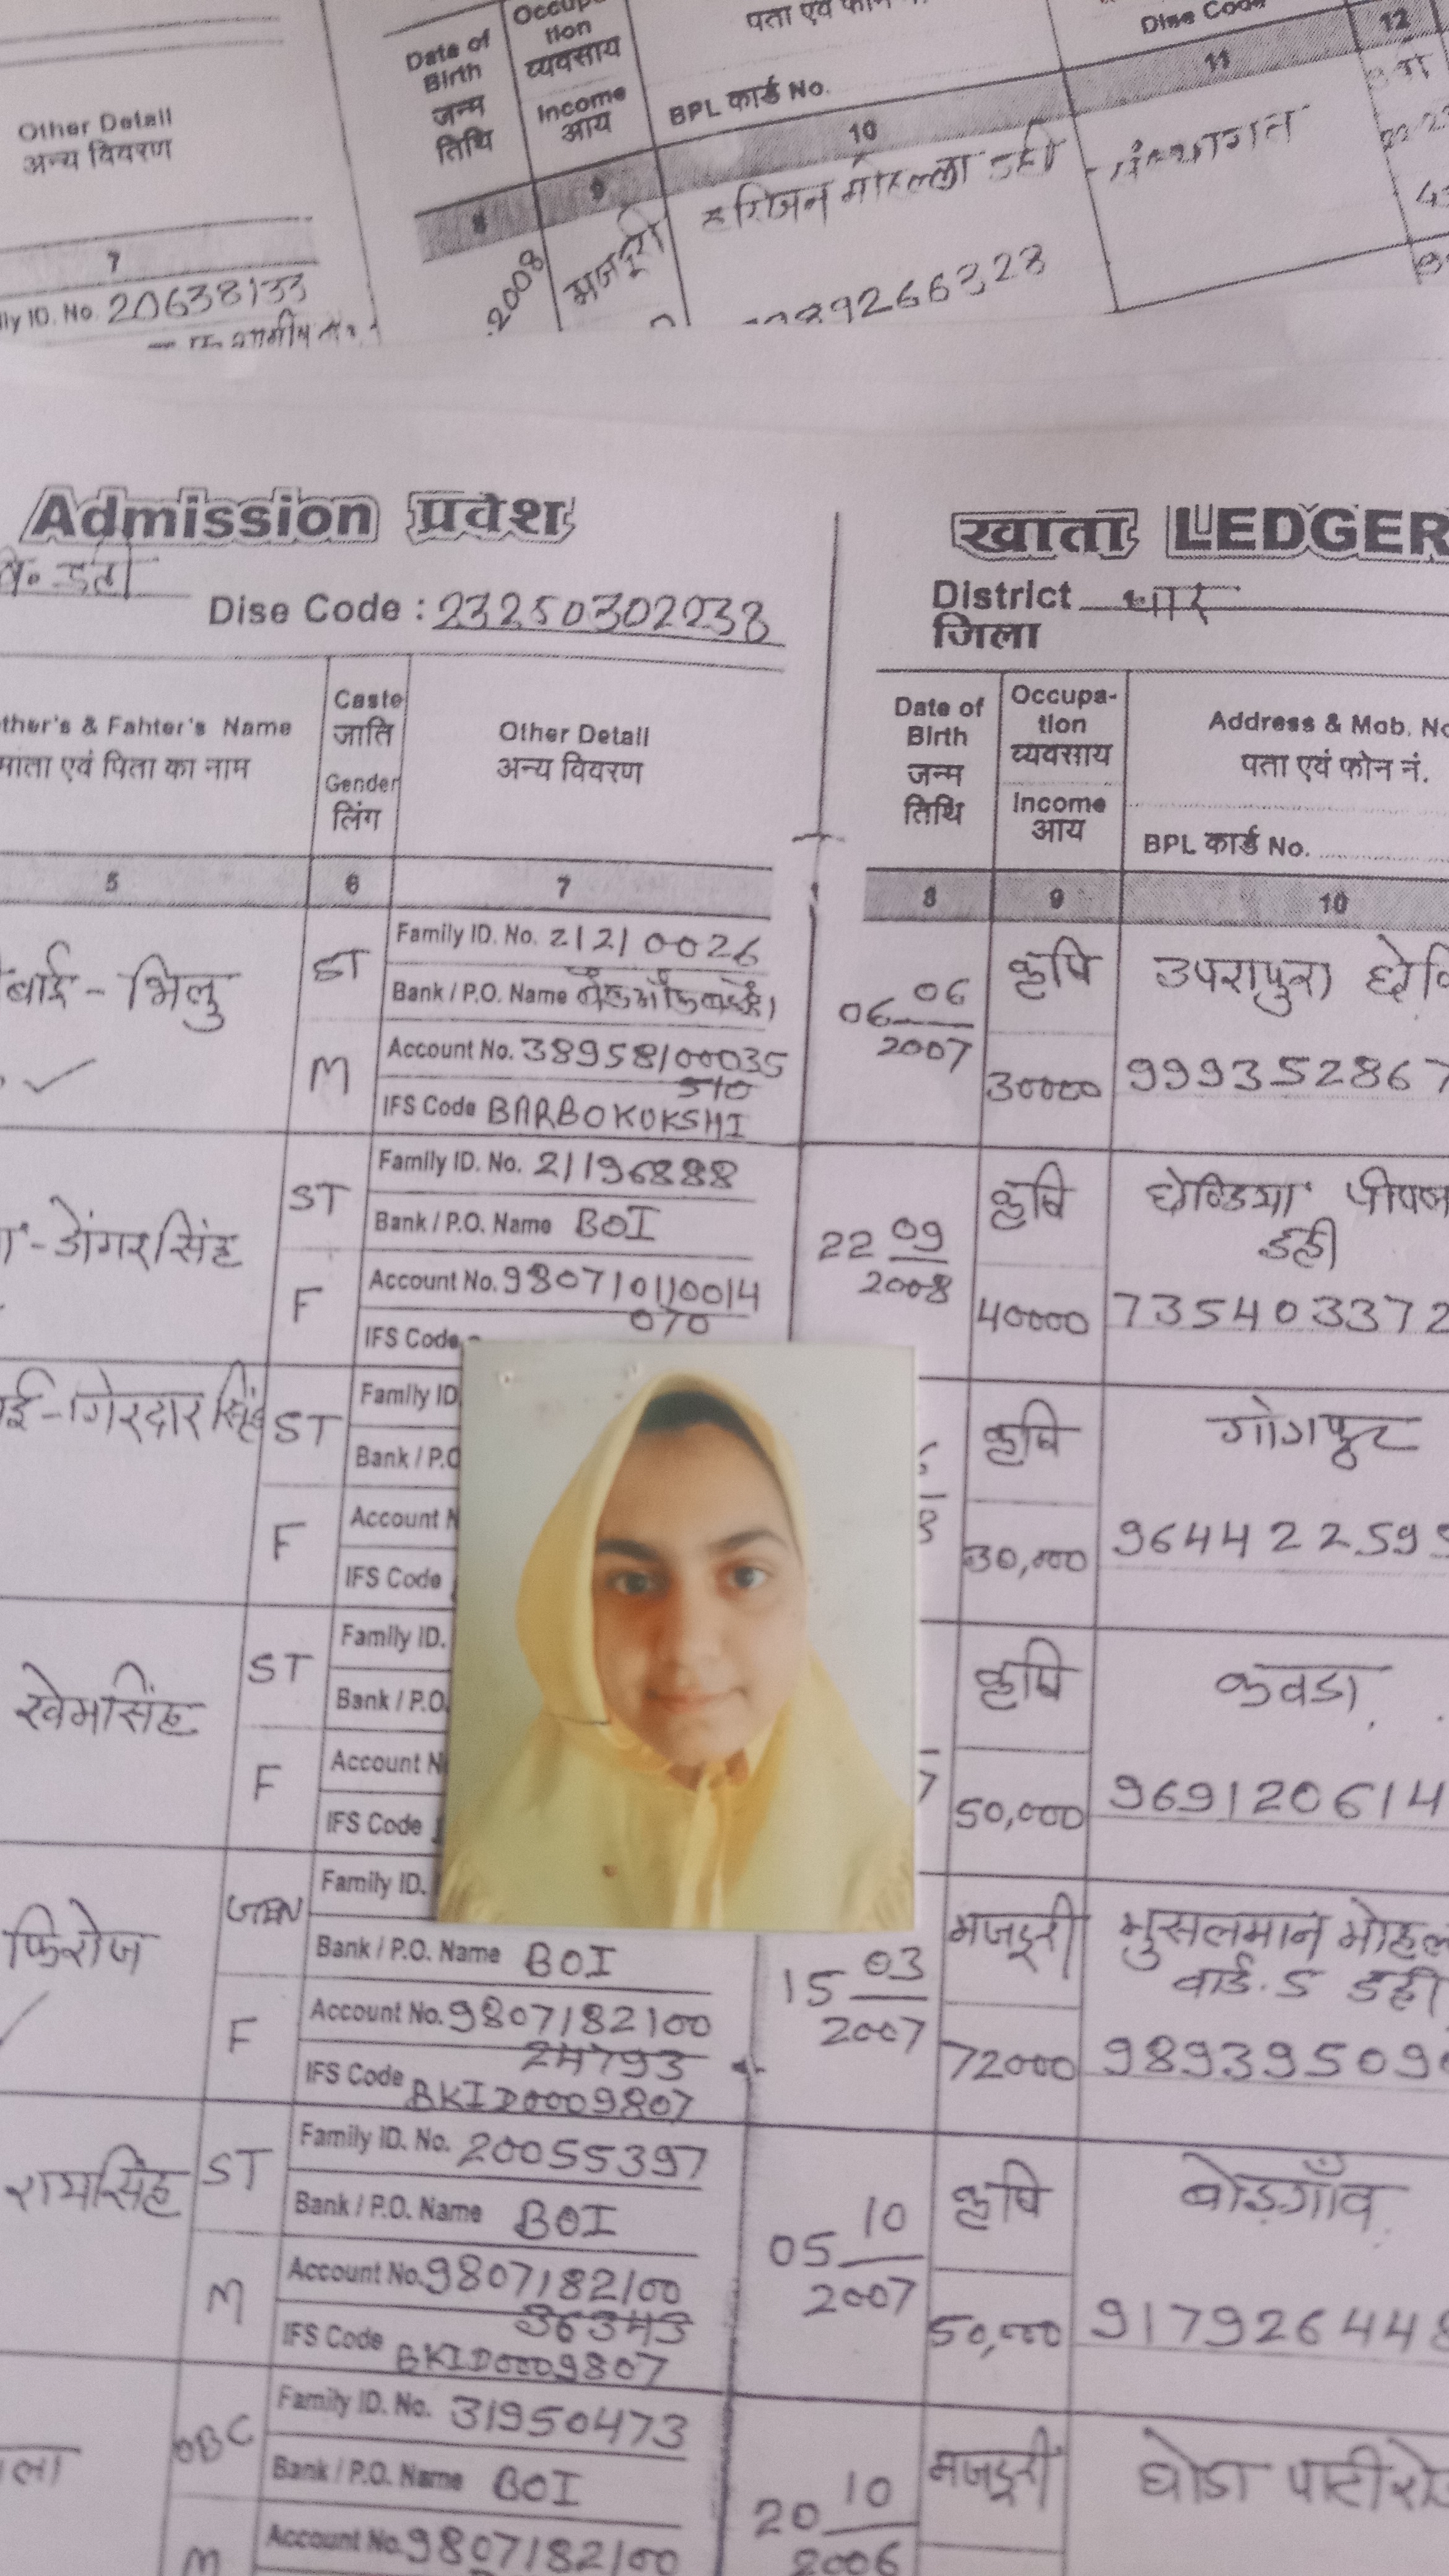 Other Detail
अन्य विवरण
7
ly ID. No. 20638133
Date of
Birth
जन्म
तिथि
8
.2008
Occupa-
tion
व्यवसाय
Income
आय
9
मजदूरी
पता एवं फोन नं.
BPL कार्ड No.
10
हरिजन मोहल्ला डही
89266328
Dise Code
11
12
Admission प्रवेश
Dise Code : 23250302238
खाता LEDGER
District धार
जिला
ther's & Fahter's Name
माता एवं पिता का नाम
Caste
जाति
Gender
लिंग
Other Detail
अन्य विवरण
Date of
Birth
जन्म
तिथि
Occupa-
tion
व्यवसाय
Income
आय
Address & Mob. No
पता एवं फोन नं.
BPL कार्ड No.
5 6 7 8 9 10
बाई - भिलु
ST
M
Family ID. No. 21210026
Bank / P.O. Name
Account No. 38958100035
510
IFS Code BARBOKUKSHI
06 06
2007
कृषि
30000
उपरापुरा
999352867
डोंगरसिंह
ST
F
Family ID. No. 21196888
Bank / P.O. Name BOI
Account No. 980710110014
070
IFS Code
22 09
2008
कृषि
40000
डही
735403372
ई-गिरदारसिंह
ST
F
Family ID
Bank / P.O
Account N
IFS Code
कृषि
30,000
964422595
खेमसिंह
ST
F
Family ID.
Bank / P.O.
Account N
IFS Code
कृषि
50,000
कवडा
969120614
फिरोज
GEN
F
Family ID.
Bank / P.O. Name BOI
Account No. 9807182100
24793
IFS Code BKID0009807
15 03
2007
मजदूरी
72000
मुसलमान मोहल
वार्ड. 5 डही
98939509
रामसिंह
ST
M
Family ID. No. 20055397
Bank / P.O. Name BOI
Account No. 9807182100
36343
IFS Code BKID0009807
05 10
2007
कृषि
50,000
बोडगाँव
917926448
ला
OBC
M
Family ID. No. 31950473
Bank / P.O. Name BOI
Account No. 9807182100
20 10
2006
मजदूरी
घोडा